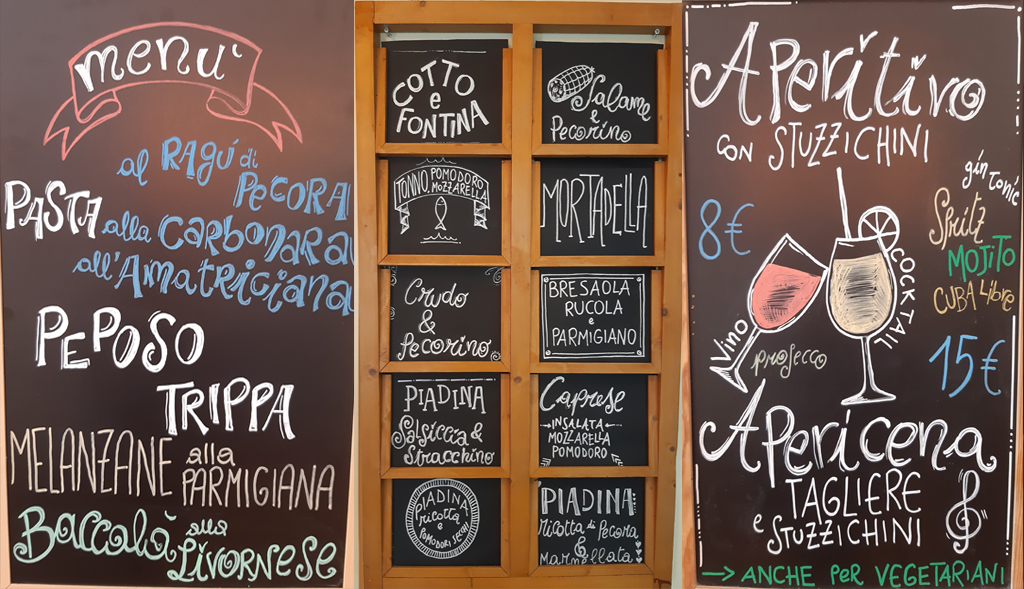 menu'
al RAGÚ di
PECORA
PASTA alla CARBONARA
all'AMATRICIANA
PEPOSO
TRIPPA
MELANZANE alla
PARMIGIANA
Baccalà alla
LIVORNESE
COTTO
e
FONTINA
Salame
e
Pecorino
TONNO, POMODORO
MOZZARELLA
MORTADELLA
Crudo
&
Pecorino
BRESAOLA
RUCOLA
e
PARMIGIANO
PIADINA
Salsiccia &
Stracchino
Caprese
INSALATA
MOZZARELLA
POMODORO
PIADINA
ricotta
e
POMODORI SECCHI
PIADINA
ricotta di pecora
&
marmellata
APERITIVO
con STUZZICHINI
8€
gin tonic
Spritz
MOJITO
CUBA Libre
COCKTAIL
Vino
PROSECCO
15€
APERICENA
TAGLIERE
e STUZZICHINI
→ ANCHE PER VEGETARIANI